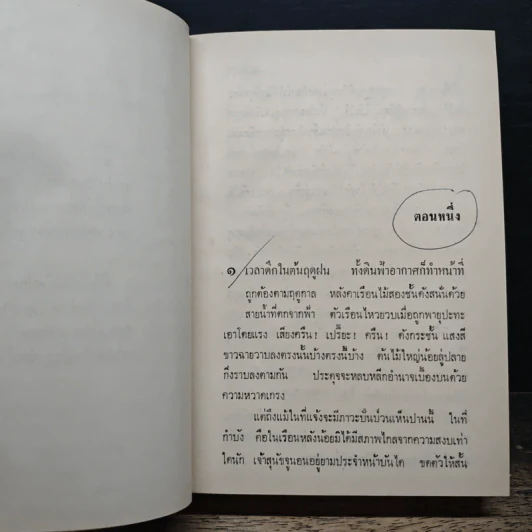 ตอนหนึ่ง
๑ เวลาดึกในต้นฤดูฝน ทั้งดินฟ้าอากาศก็ทำหน้าที่
ถูกต้องตามฤดูกาล หลังคาเรือนไม้สองชั้นดังสนั่นด้วย
สายน้ำที่ตกจากฟ้า ตัวเรือนไหวยวบเมื่อถูกพายุปะทะ
เอาโดยแรง เสียงครืน! เปรี๊ยะ! ครืน! ดังกระชั้น แสงสี
ขาวฉายวาบลงตรงนั้นบ้างตรงนี้บ้าง ต้นไม้ใหญ่น้อยลู่ปลาย
กิ่งราบลงตามกัน ประดุจจะหลบหลีกอำนาจเบื้องบนด้วย
ความหวาดเกรง
แต่ถึงแม้ในที่แจ้งจะมีภาวะปั่นป่วนเห็นปานนี้ ในที่
กำบัง คือในเรือนหลังน้อยมิได้มีสภาพไกลจากความสงบเท่า
ใดนัก เจ้าสุนัขจูนอนอยู่ยามประจำหน้าบันได ขดตัวให้สั้น